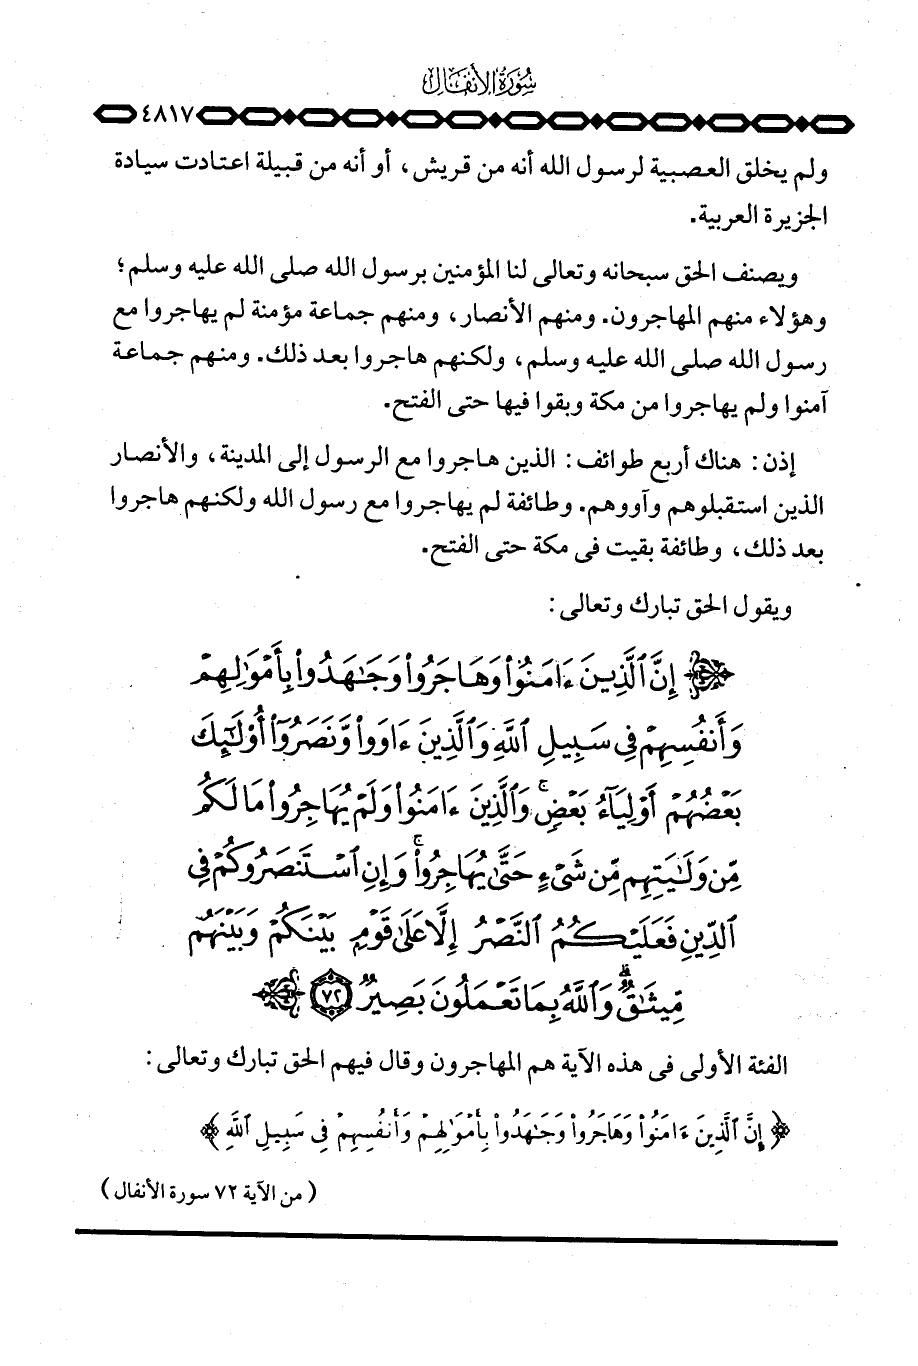 سورة الأنفال
٤٨١٧
ولم يخلق العصبية لرسول الله أنه من قريش، أو أنه من قبيلة اعتادت سيادة
الجزيرة العربية.
ويصنف الحق سبحانه وتعالى لنا المؤمنين برسول الله صلى الله عليه وسلم؛
وهؤلاء منهم المهاجرون. ومنهم الأنصار، ومنهم جماعة مؤمنة لم يهاجروا مع
رسول الله صلى الله عليه وسلم، ولكنهم هاجروا بعد ذلك. ومنهم جماعة
آمنوا ولم يهاجروا من مكة وبقوا فيها حتى الفتح.
إذن: هناك أربع طوائف: الذين هاجروا مع الرسول إلى المدينة، والأنصار
الذين استقبلوهم وآووهم. وطائفة لم يهاجروا مع رسول الله ولكنهم هاجروا
بعد ذلك، وطائفة بقيت فى مكة حتى الفتح.
ويقول الحق تبارك وتعالى:
إِنَّ ٱلَّذِينَ ءَامَنُوا۟ وَهَاجَرُوا۟ وَجَـٰهَدُوا۟ بِأَمْوَٰلِهِمْ
وَأَنفُسِهِمْ فِى سَبِيلِ ٱللَّهِ وَٱلَّذِينَ ءَاوَوا۟ وَّنَصَرُوٓا۟ أُو۟لَـٰٓئِكَ
بَعْضُهُمْ أَوْلِيَآءُ بَعْضٍۚ وَٱلَّذِينَ ءَامَنُوا۟ وَلَمْ يُهَاجِرُوا۟ مَا لَكُم
مِّن وَلَـٰيَتِهِم مِّن شَىْءٍ حَتَّىٰ يُهَاجِرُوا۟ۚ وَإِنِ ٱسْتَنصَرُوكُمْ فِى
ٱلدِّينِ فَعَلَيْكُمُ ٱلنَّصْرُ إِلَّا عَلَىٰ قَوْمٍۭ بَيْنَكُمْ وَبَيْنَهُم
مِّيثَـٰقٌۗ وَٱللَّهُ بِمَا تَعْمَلُونَ بَصِيرٌ ٧٢
الفئة الأولى فى هذه الآية هم المهاجرون وقال فيهم الحق تبارك وتعالى:
﴿ إِنَّ ٱلَّذِينَ ءَامَنُوا۟ وَهَاجَرُوا۟ وَجَـٰهَدُوا۟ بِأَمْوَٰلِهِمْ وَأَنفُسِهِمْ فِى سَبِيلِ ٱللَّهِ ﴾
(من الآية ٧٢ سورة الأنفال)